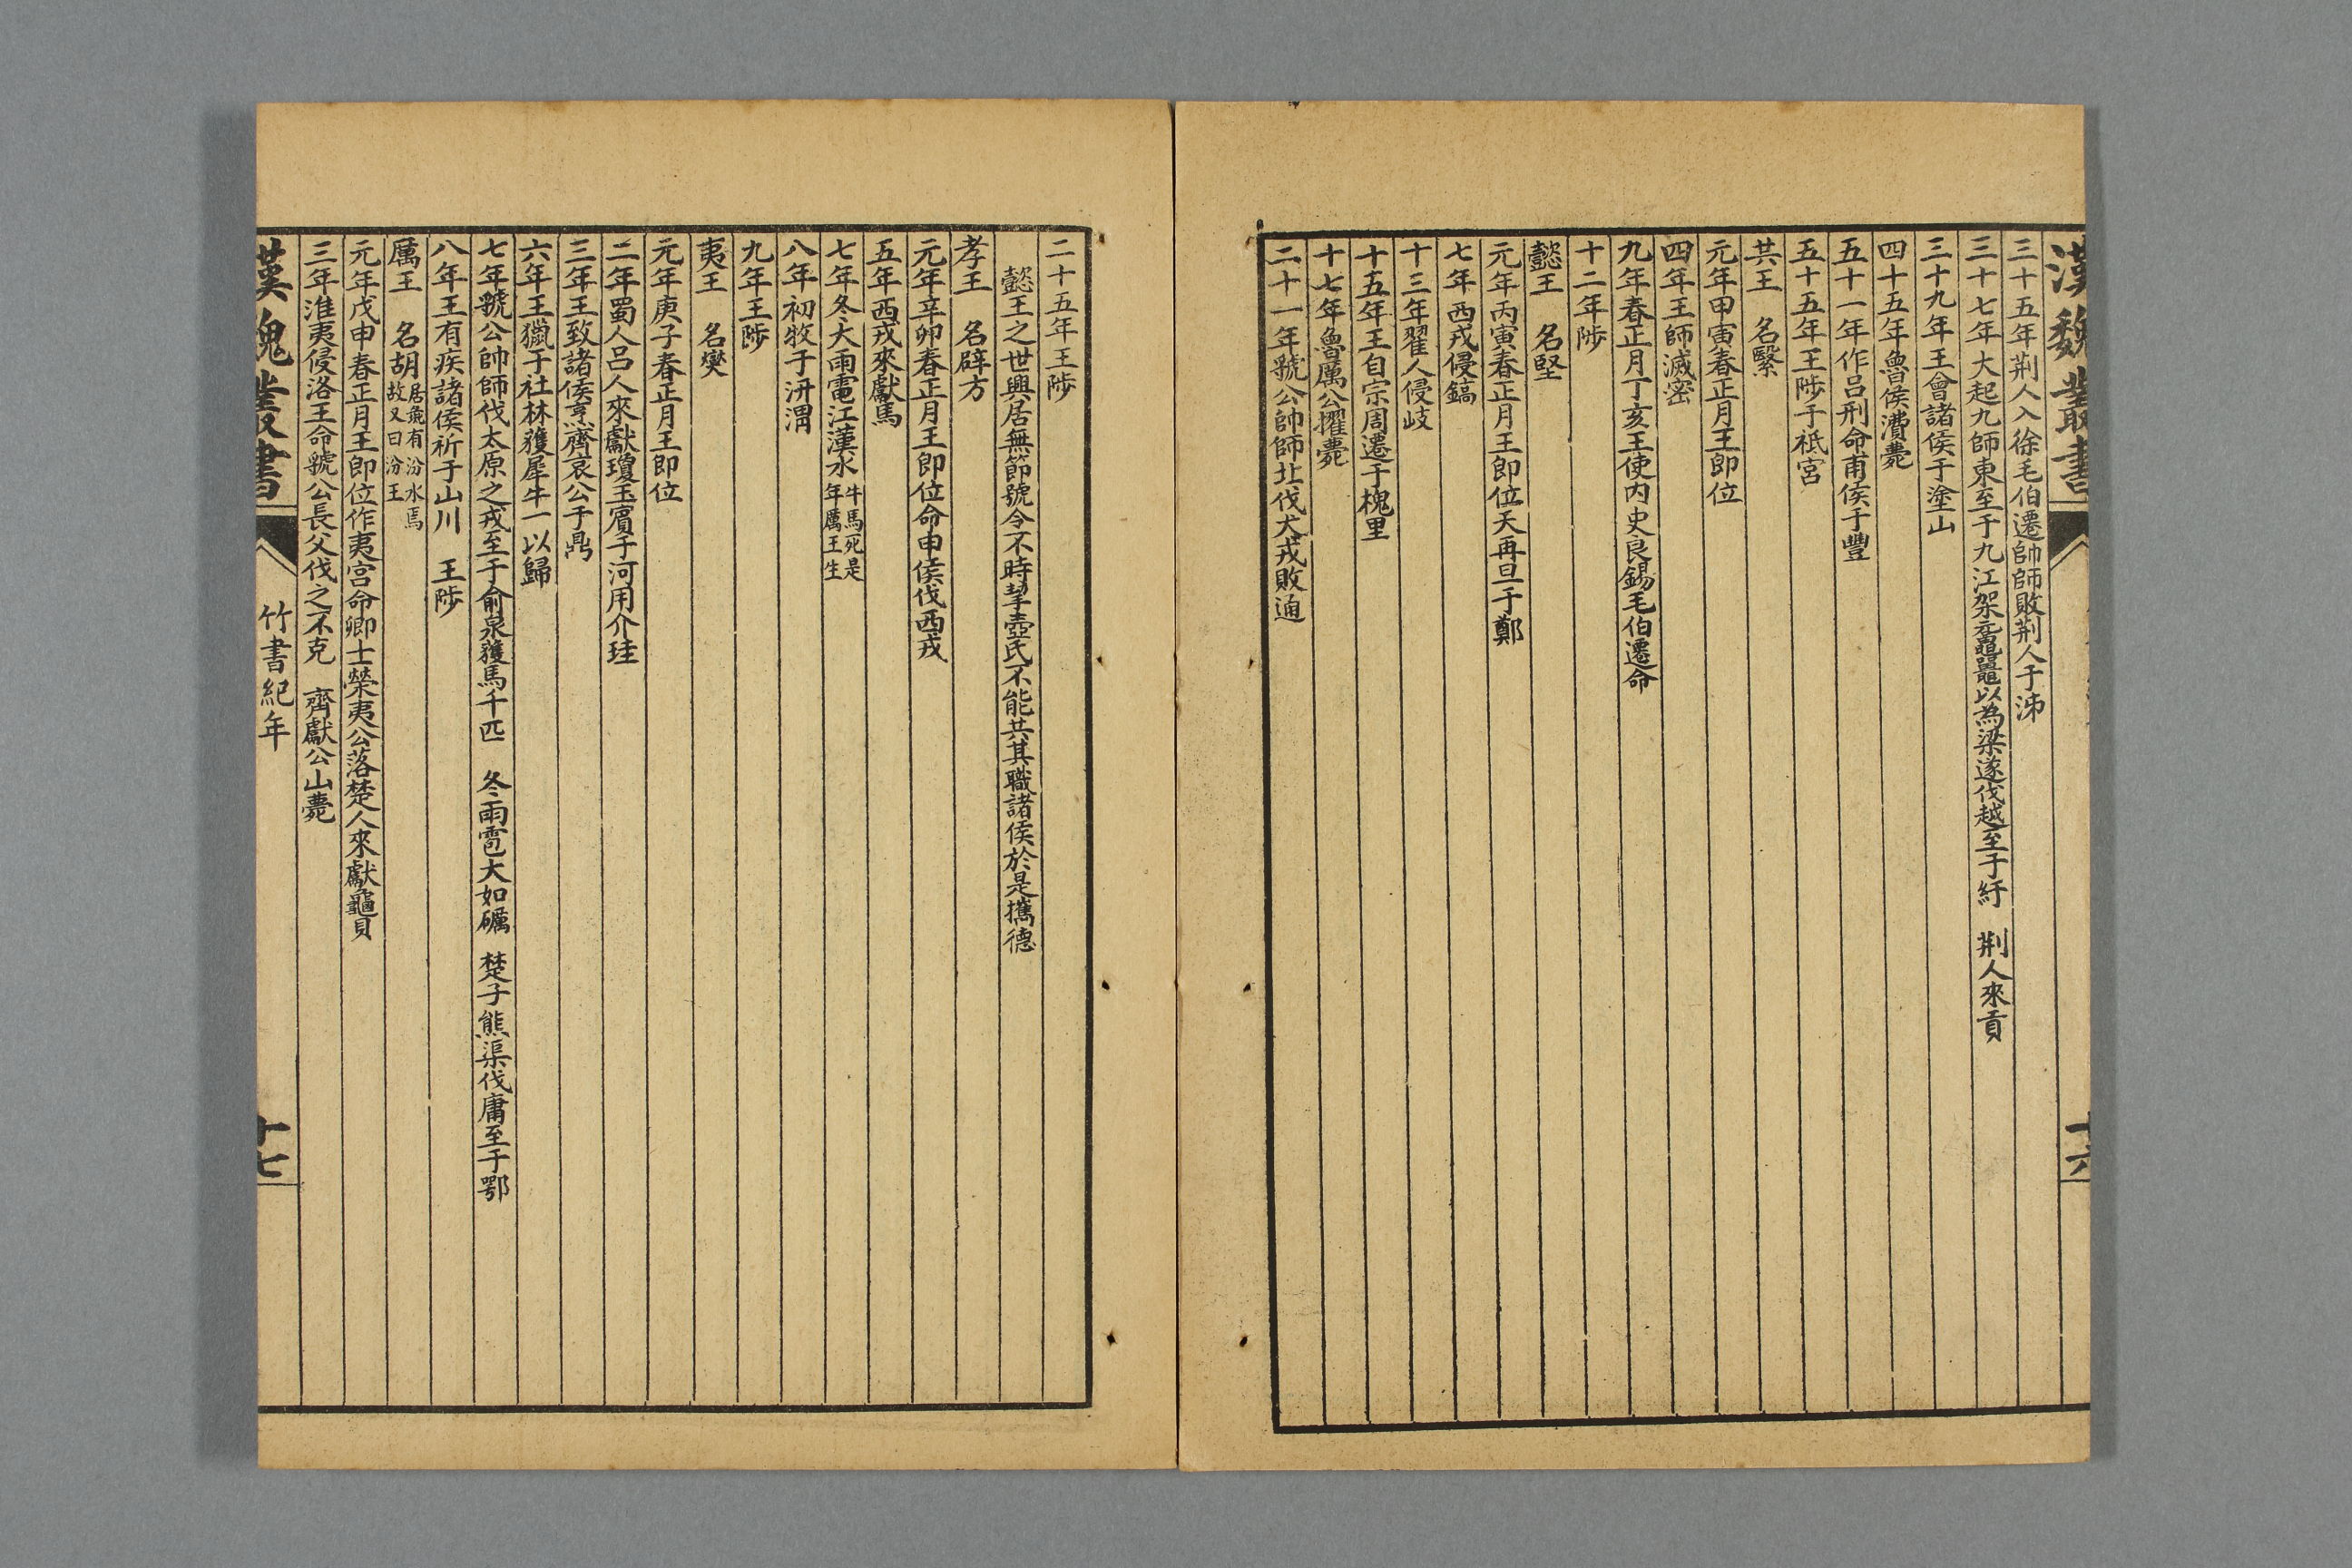 漢魏叢書
十六
三十五年荆人入徐毛伯遷帥師敗荆人于泲
三十七年大起九師東至于九江架黿鼉以為梁遂伐越至于紆　荆人來貢
三十九年王會諸侯于塗山
四十五年魯侯濞薨
五十一年作呂刑命甫侯于豐
五十五年王陟于祗宮
共王　名繄
元年甲寅春正月王即位
四年王師滅密
九年春正月丁亥王使内史良錫毛伯遷命
十二年陟
懿王　名堅
元年丙寅春正月王即位天再旦于鄭
七年西戎侵鎬
十三年翟人侵岐
十五年王自宗周遷于槐里
十七年魯厲公擢薨
二十一年虢公帥師北伐犬戎敗逋
二十五年王陟
懿王之世興居無節號令不時挈壺氏不能共其職諸侯於是攜德
孝王　名辟方
元年辛卯春正月王即位命申侯伐西戎
五年西戎來獻馬
七年冬大雨電江漢水牛馬死是年厲王生
八年初牧于汧渭
九年王陟
夷王　名燮
元年庚子春正月王即位
二年蜀人呂人來獻瓊玉賓于河用介珪
三年王致諸侯烹齊哀公于鼎
六年王獵于社林獲犀牛一以歸
七年虢公帥師伐太原之戎至于俞泉獲馬千匹　冬雨雹大如礪　楚子熊渠伐庸至于鄂
八年王有疾諸侯祈于山川　王陟
厲王　名胡居彘有汾水焉故又曰汾王
元年戊申春正月王即位作夷宮命卿士榮夷公落楚人來獻龜貝
三年淮夷侵洛王命虢公長父伐之不克　齊獻公山薨
漢魏叢書
竹書紀年
十七